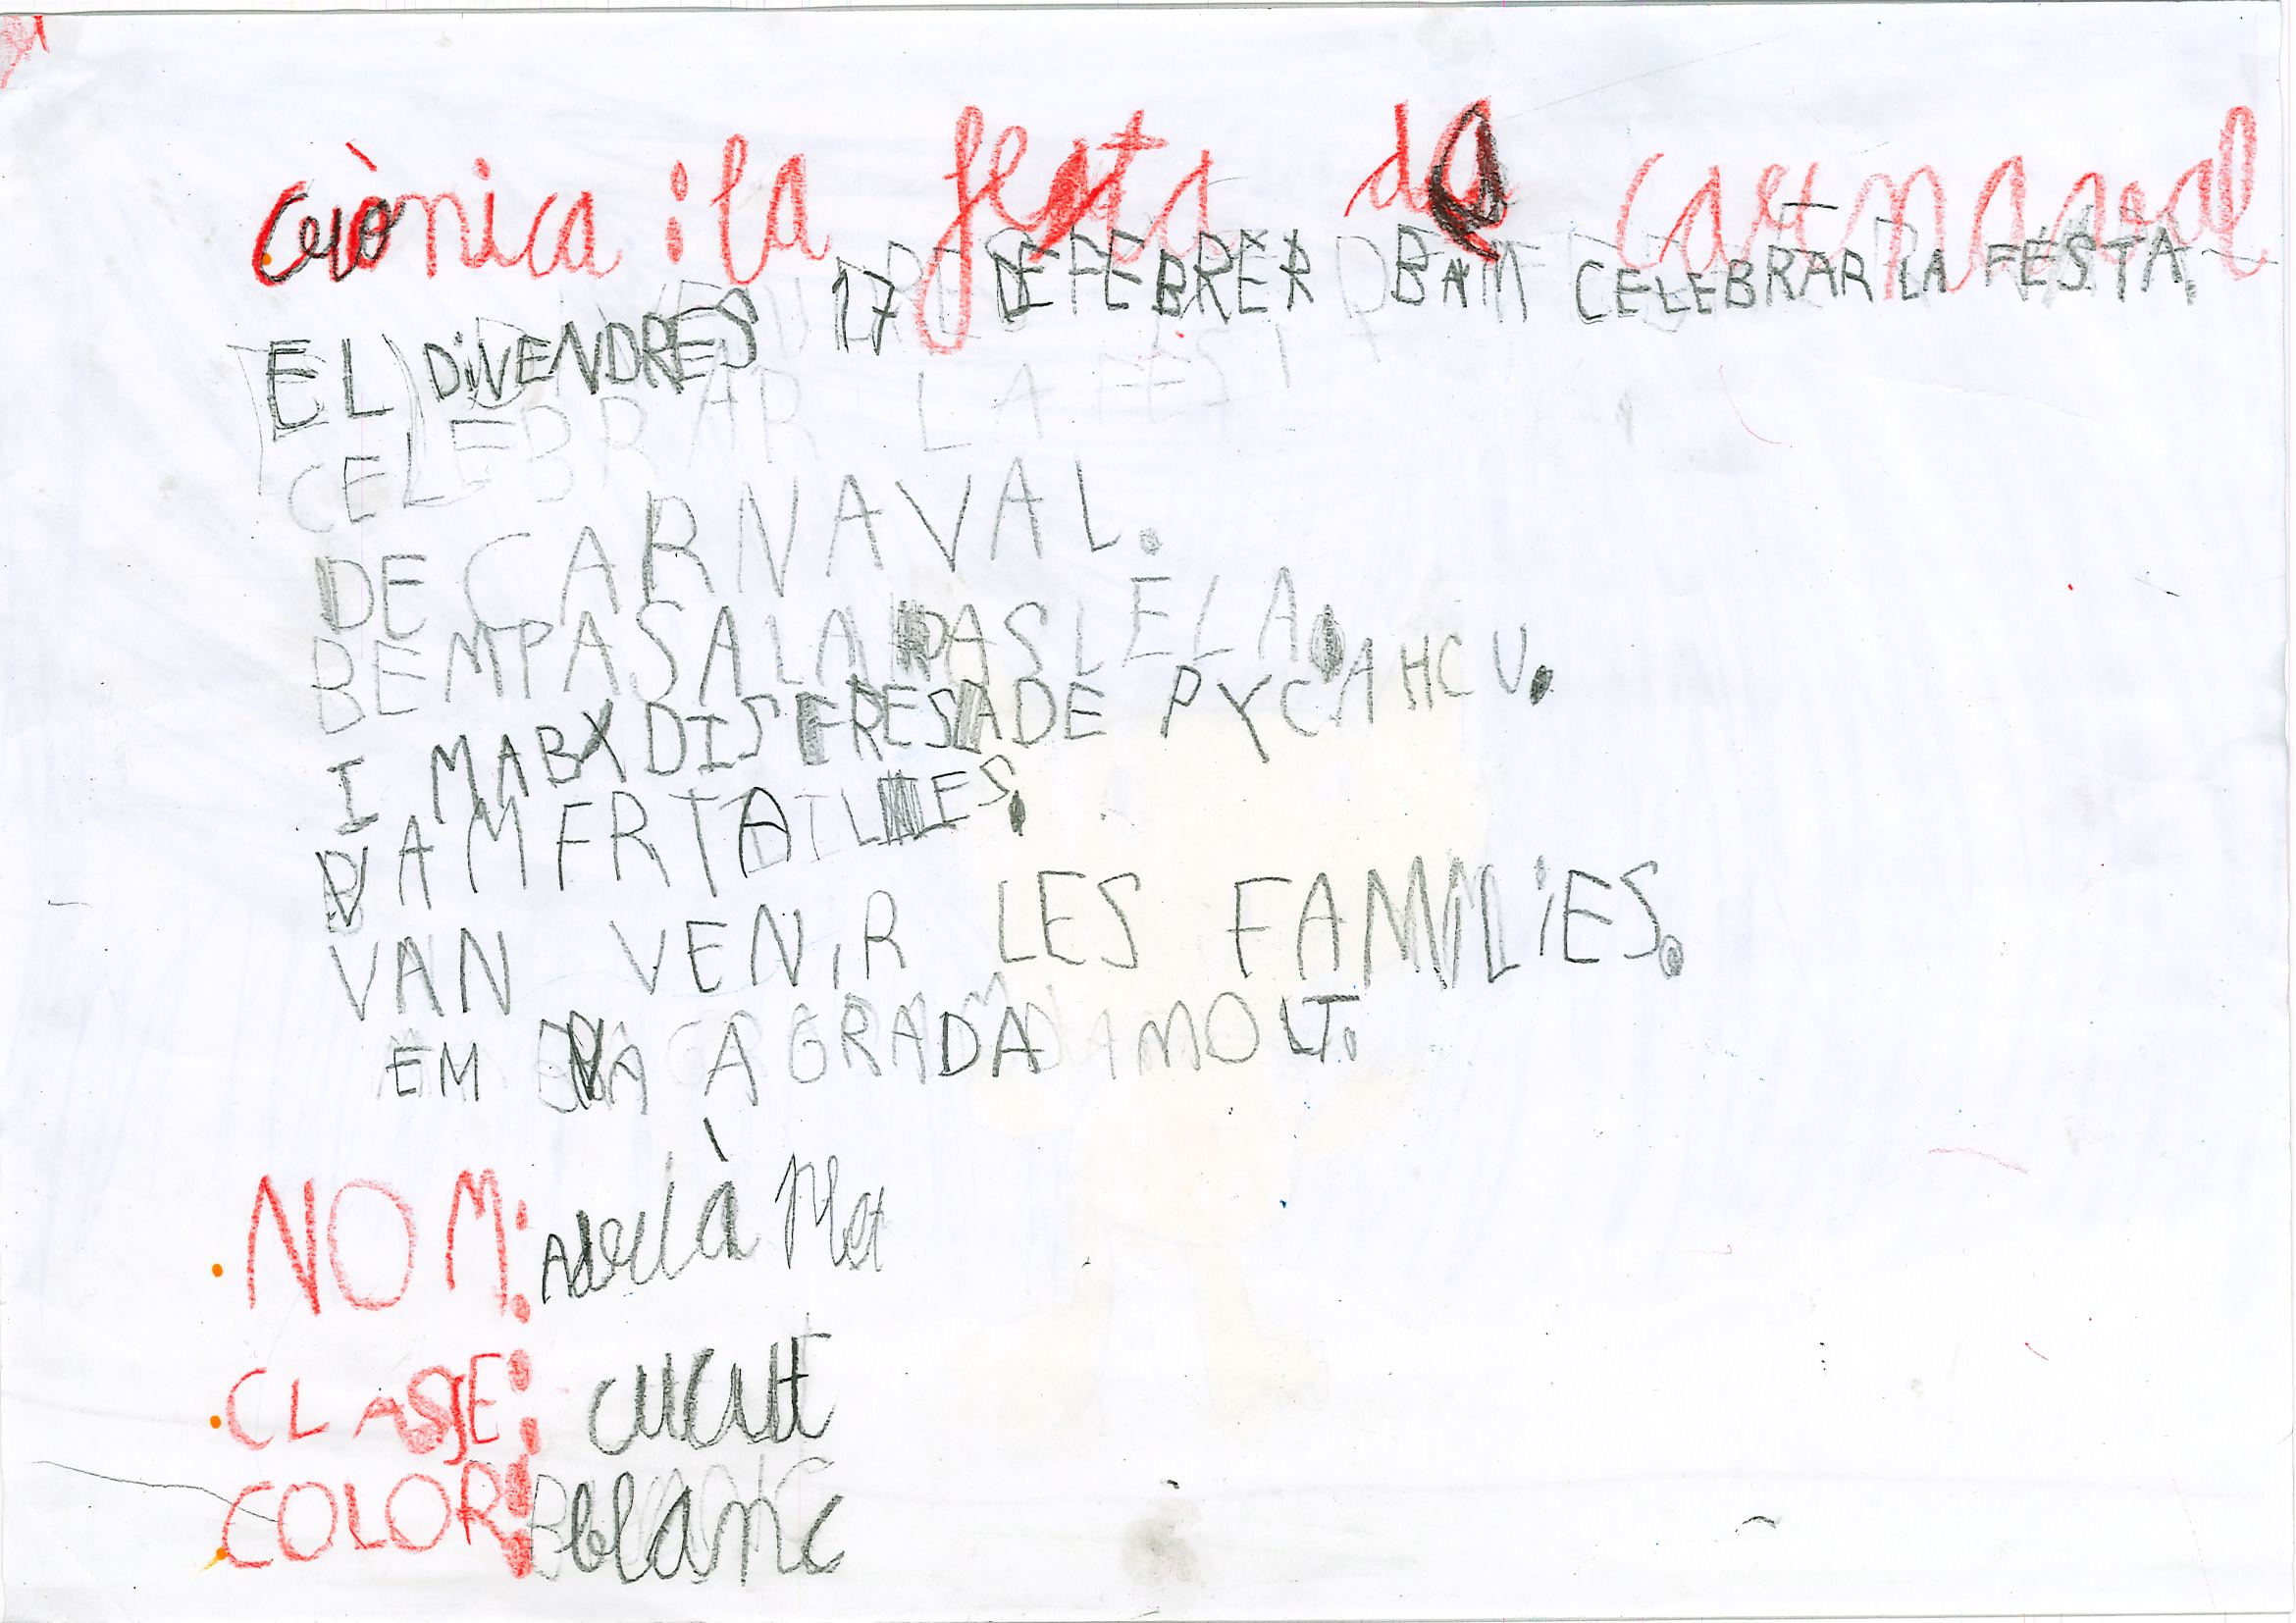 crònica : la festa de carnaval
EL DIVENDRES 17 DE FEBRER BAM CELEBRAR LA FESTA
CELEBRAR LA FEST
DE CARNAVAL.
BEM PASA LA PASLELA.
I MABX DISFRESADE PYCAHCU.
VAM FR TALLES.
VAN VENIR LES FAMILIES.
EM VA AGRADA MOLT.
NOM: Adrià
CLASSE: cucut
COLOR: blanc